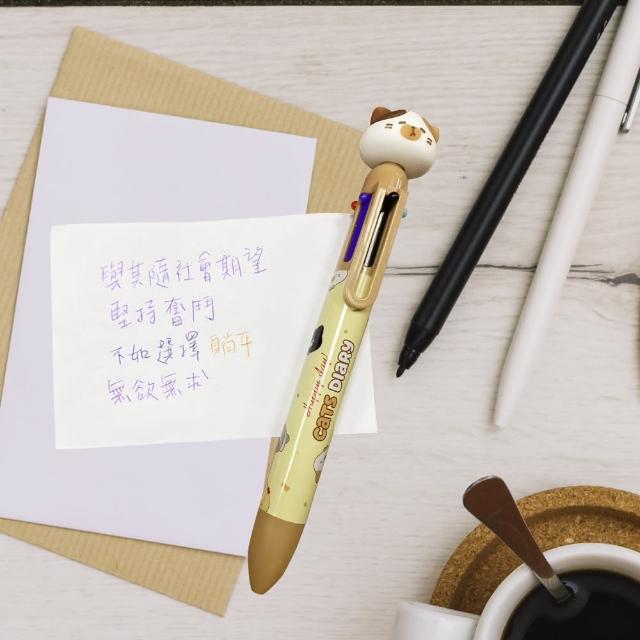 與其隨社會期望
堅持奮鬥
不如選擇 躺平
無欲無求
CATS DIARY